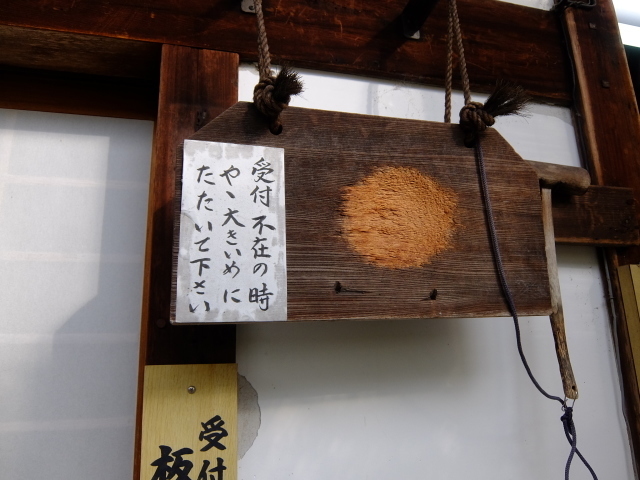 受付不在の時
やゝ大きいめに
たたいて下さい
受付
板